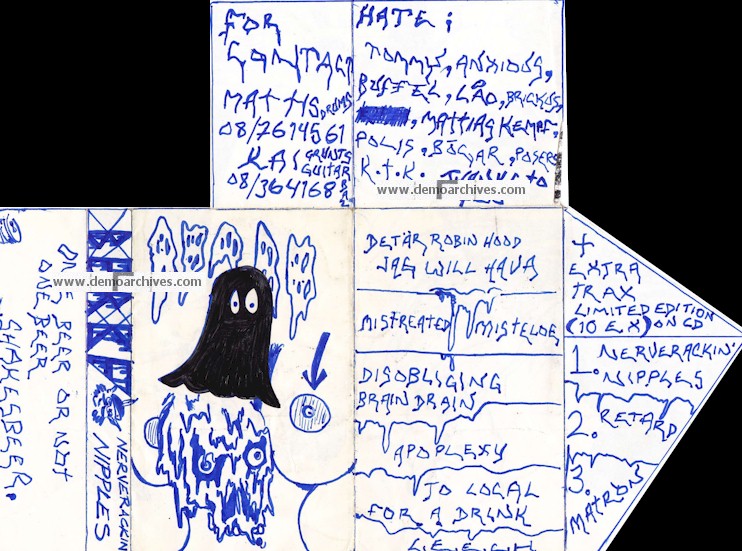 FOR
CONTACT
MATTIS DRUMS
08/7614561
KAI GRUNTS
GUITAR
08/364168
HATE:
TOMMYS, ANXIOUS,
BUFFEL, LÅO, BRICKUS,
, MATTIAS KEMPF,
POLIS, BÖGAR, POSERS
K.T.K.
www.demoarchives.com
ONE BEER OR NOT
ONE BEER
SHAKESBEER.
www.demoarchives.com
NERVERACKIN
NIPPLES
DETÄR ROBIN HOOD
JAG WILL HAVA
MISTREATED MISTELOE
DISOBLIGING
BRAIN DRAIN
APOPLEXY
TO LOCAL
FOR A DRINK
EXTRA
TRAX
LIMITED EDITION
(10 EX) ON CD
1. NERVERACKIN'
NIPPLES
2. RETARD
3. MATRON
www.demoarchives.com